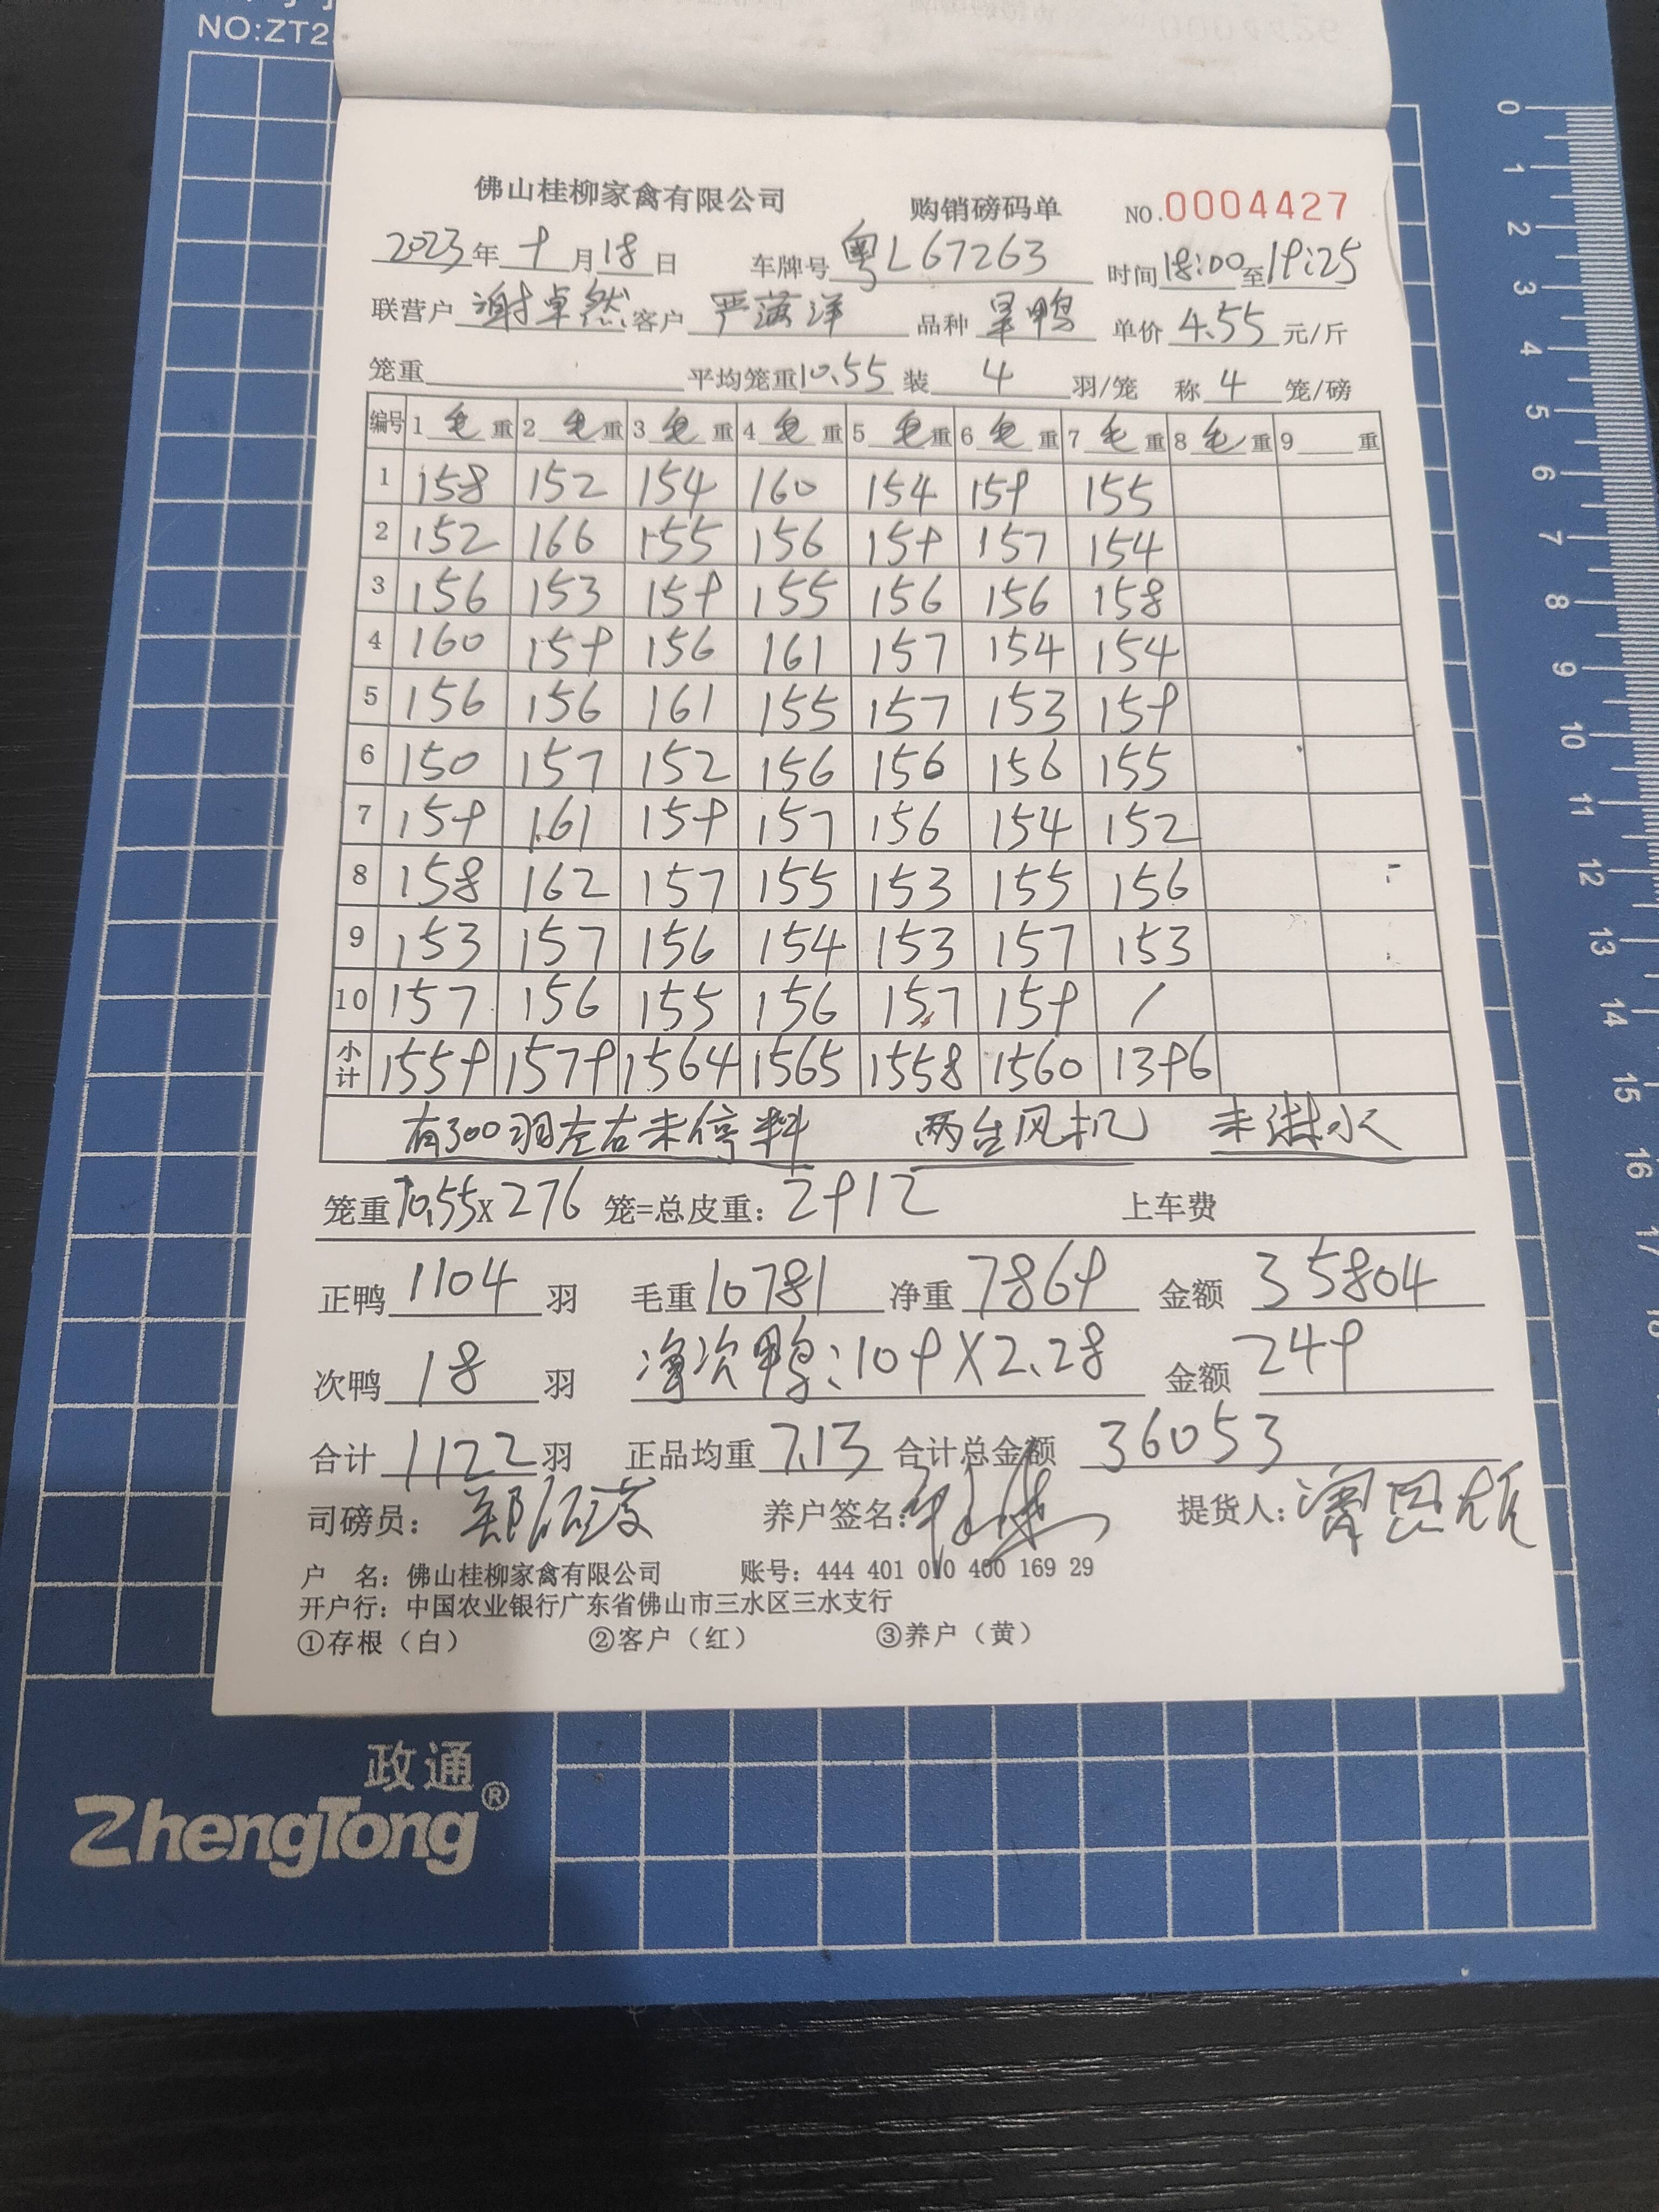 NO:ZT2
佛山桂柳家禽有限公司 购销磅码单 NO.0004427
2023年 9月18日 车牌号 粤L67263 时间18:00至19:25
联营户 谢卓然 客户 严 洋 品种 旱鸭 单价 4.55 元/斤
笼重 平均笼重10.55 装 4 羽/笼 称 4 笼/磅
编号 1 毛 重 2 毛 重 3 毛 重 4 毛 重 5 毛 重 6 毛 重 7 毛 重 8 毛 重 9 重
1 158 152 154 160 154 159 155
2 152 166 155 156 159 157 154
3 156 153 159 155 156 156 158
4 160 159 156 161 157 154 154
5 156 156 161 155 157 153 159
6 150 157 152 156 156 156 155
7 159 161 159 157 156 154 152
8 158 162 157 155 153 155 156
9 153 157 156 154 153 157 153
10 157 156 155 156 157 159 /
小计 1559 1579 1564 1565 1558 1560 1396
有300羽左右未停料 两台风机 未淋水
笼重10.55x276 笼=总皮重: 2912 上车费
正鸭 1104 羽 毛重 10781 净重 7869 金额 35804
次鸭 18 羽 净次鸭:109X2.28 金额 249
合计 1122 羽 正品均重 7.13 合计总金额 36053
司磅员: 养户签名: 提货人:
户 名: 佛山桂柳家禽有限公司 账号: 444 401 010 400 169 29
开户行: 中国农业银行广东省佛山市三水区三水支行
①存根（白） ②客户（红） ③养户（黄）
政通
ZhengTong®
0
1
2
3
4
5
6
7
8
9
10
11
12
13
14
15
16